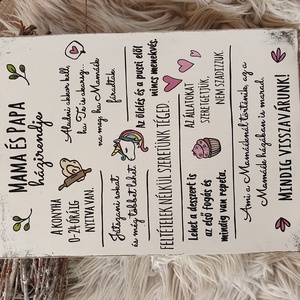 MAMA ÉS PAPA
házirendje
A KONYHA
0-24 ÓRÁIG
NYITVA VAN.
Aludni akkor kell,
ha Te is akarsz,
na meg ha Mamáék
fáradtak.
Játszani sokat
és még többet lehet
Az ölelés és a puszi elől
nincs menekvés.
FELTÉTELEK NÉLKÜL SZERETÜNK TÉGED.
Lehet a desszert is
az első fogás és
mindig van repeta.
AZ ÁLLATOKAT
SZERETGETJÜK,
NEM SZADIZZUK.
Ami a Mamáéknál történik, az a
Mamáék házában is marad.
MINDIG VISSZAVÁRUNK!